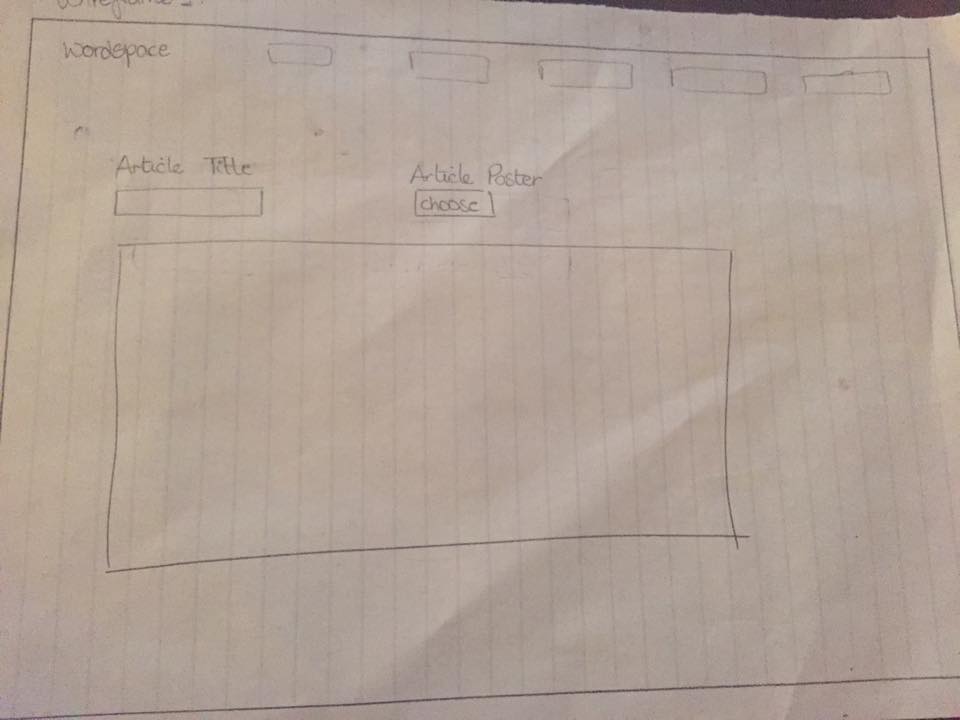 Wordspace
Article Title
Article Poster
choose